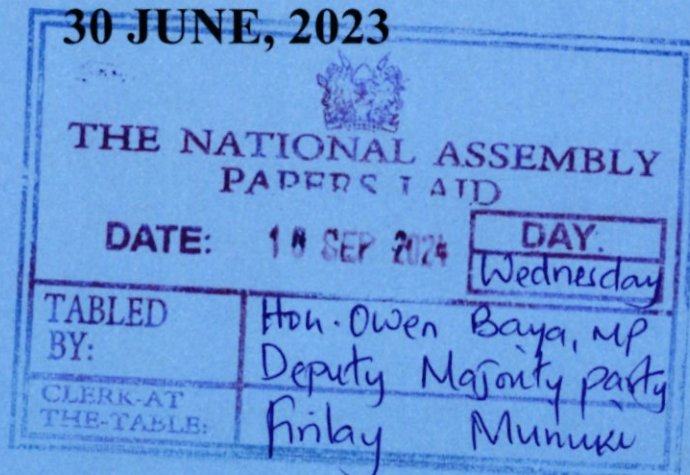 30 JUNE, 2023
THE NATIONAL ASSEMBLY
PAPERS LAID
DATE: 18 SEP 2024 DAY.
Wednesday
TABLED BY: Hon. Owen Baya, MP
Deputy Majority party
CLERK-AT THE-TABLE: Finlay Muriuki